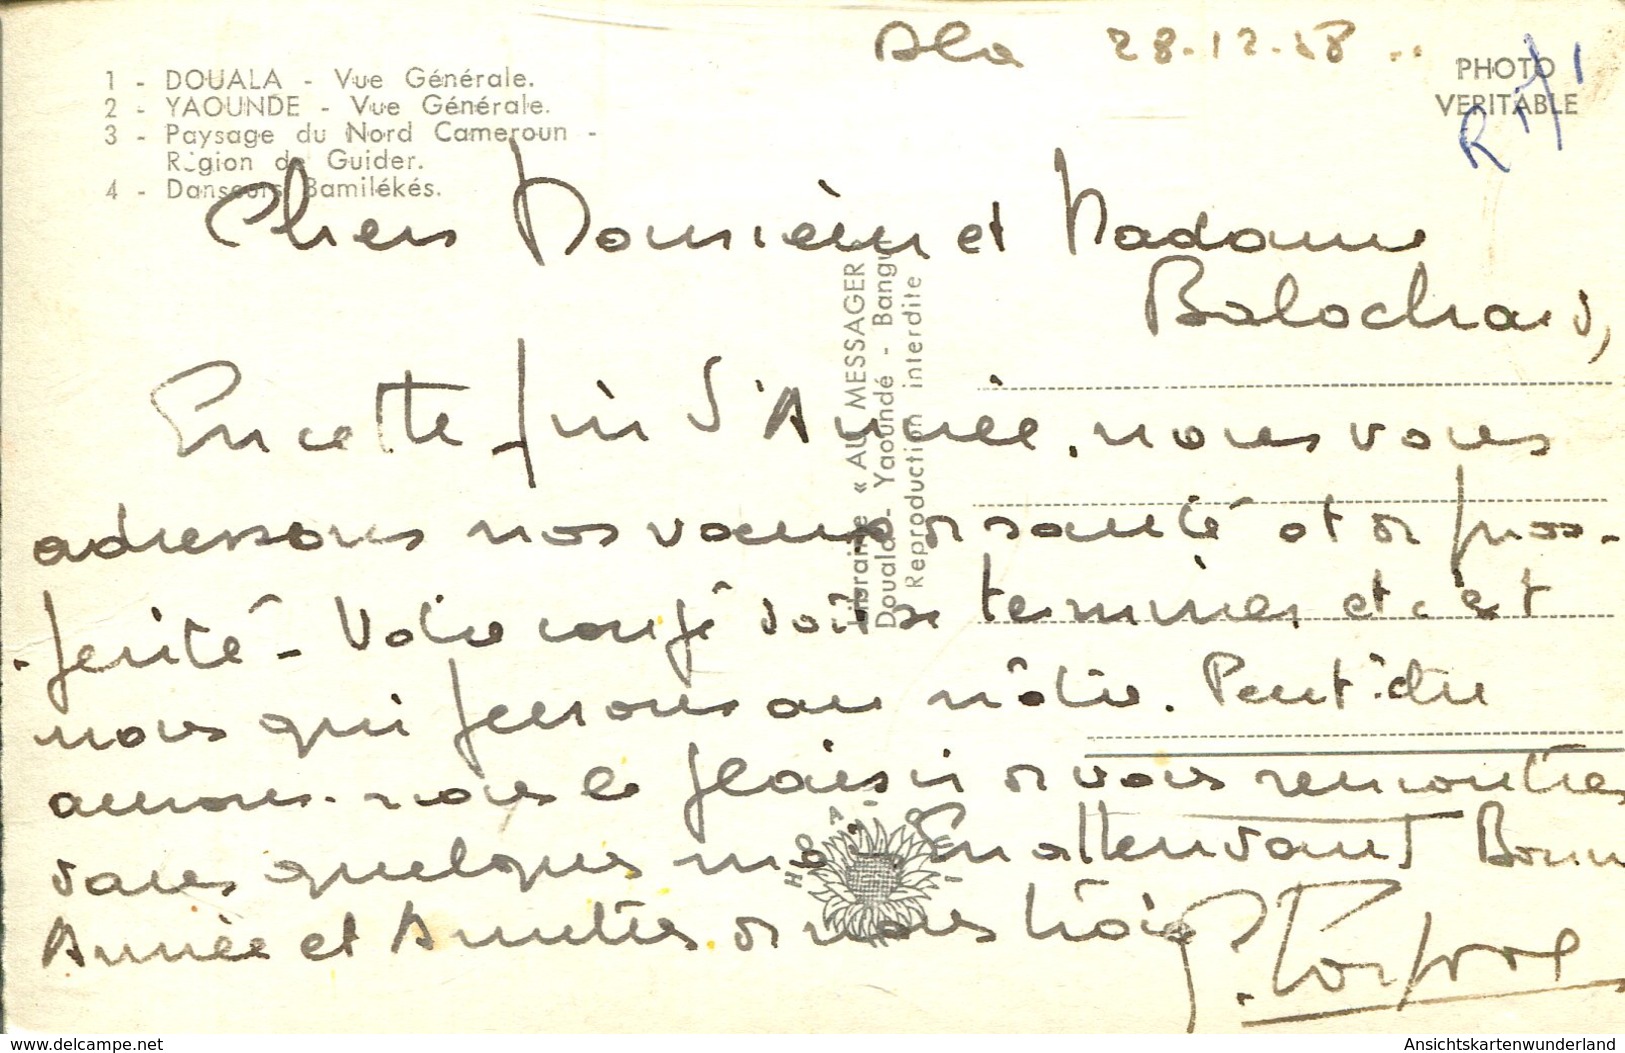 Dla 28-12-58
PHOTO
VERITABLE
R 1/1
1 - DOUALA - Vue Générale.
2 - YAOUNDE - Vue Générale.
3 - Paysage du Nord Cameroun -
Région de Guider.
4 - Danseurs Bamilékés.
Chers Monsieur et Madame
En cette fin d'Année, nous vous
adressons nos voeux de santé et de pros-
-périté - Votre congé doit se terminer et c'est
nous qui penserons au nôtre. Peut-être
aurons-nous le plaisir de vous rencontrer
dans quelques mois. En attendant Bonne
Année et Amitiés de nous trois
Librairie « AU MESSAGER
Douala - Yaoundé - Bangui
Reproduction interdite
HOA-QUI
delcampe.net
Ansichtskartenwunderland